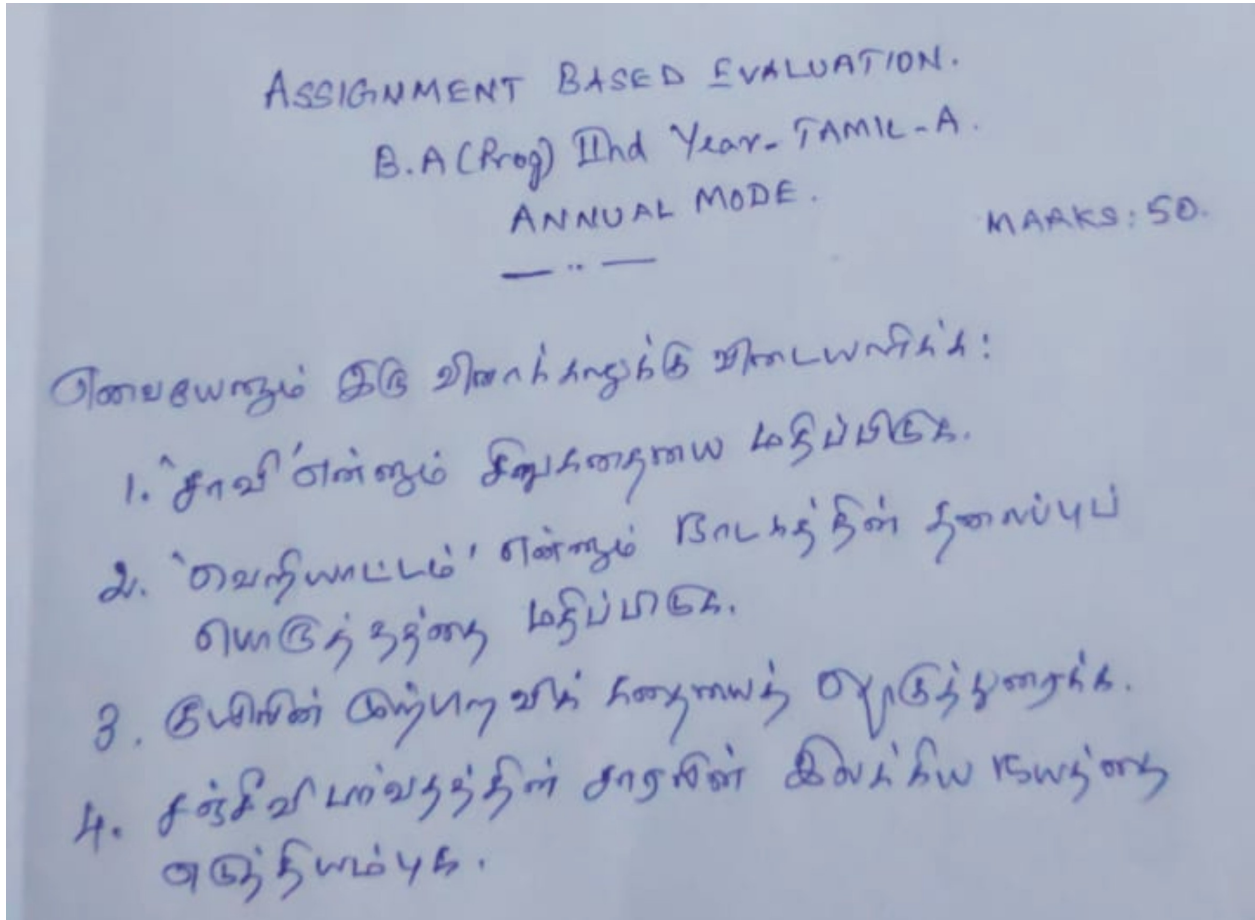 ASSIGNMENT BASED EVALUATION.
B.A (Prog) IInd Year - TAMIL - A.
ANNUAL MODE.
MARKS: 50.
எவையேனும் இரு வினாக்களுக்கு விடையளிக்க:
1. 'சாவி' என்னும் சிறுகதையை மதிப்பிடுக.
2. 'வெறியாட்டம்' என்னும் நாடகத்தின் தலைப்புப்
பொருத்தத்தை மதிப்பிடுக.
3. குயிலின் முற்பிறவிக் கதையைத் எடுத்துரைக்க.
4. சஞ்சீவி பர்வதத்தின் சாரலின் இலக்கிய நயத்தை
எடுத்தியம்புக.